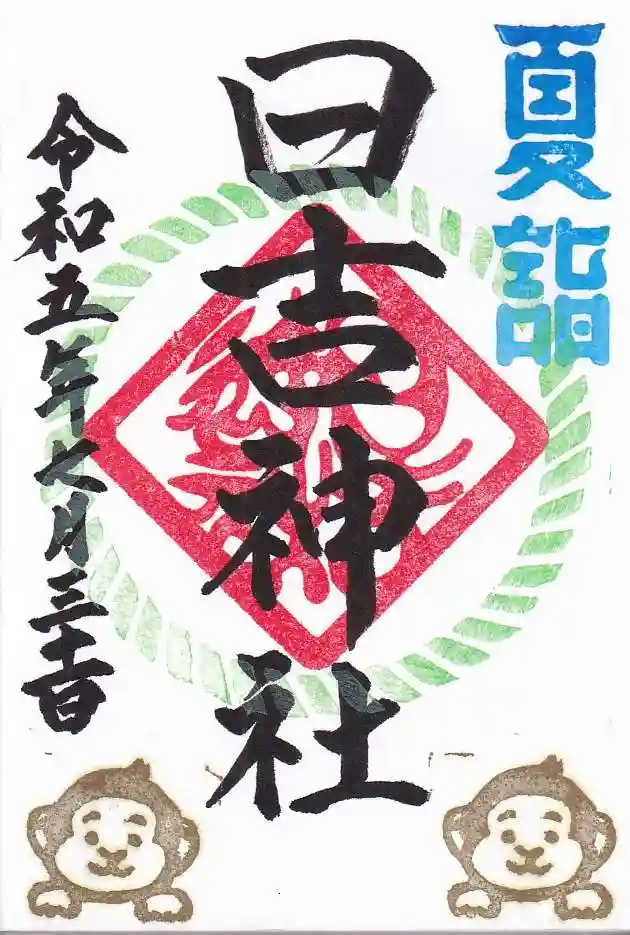 夏詣
日吉神社
令和五年七月三十一日